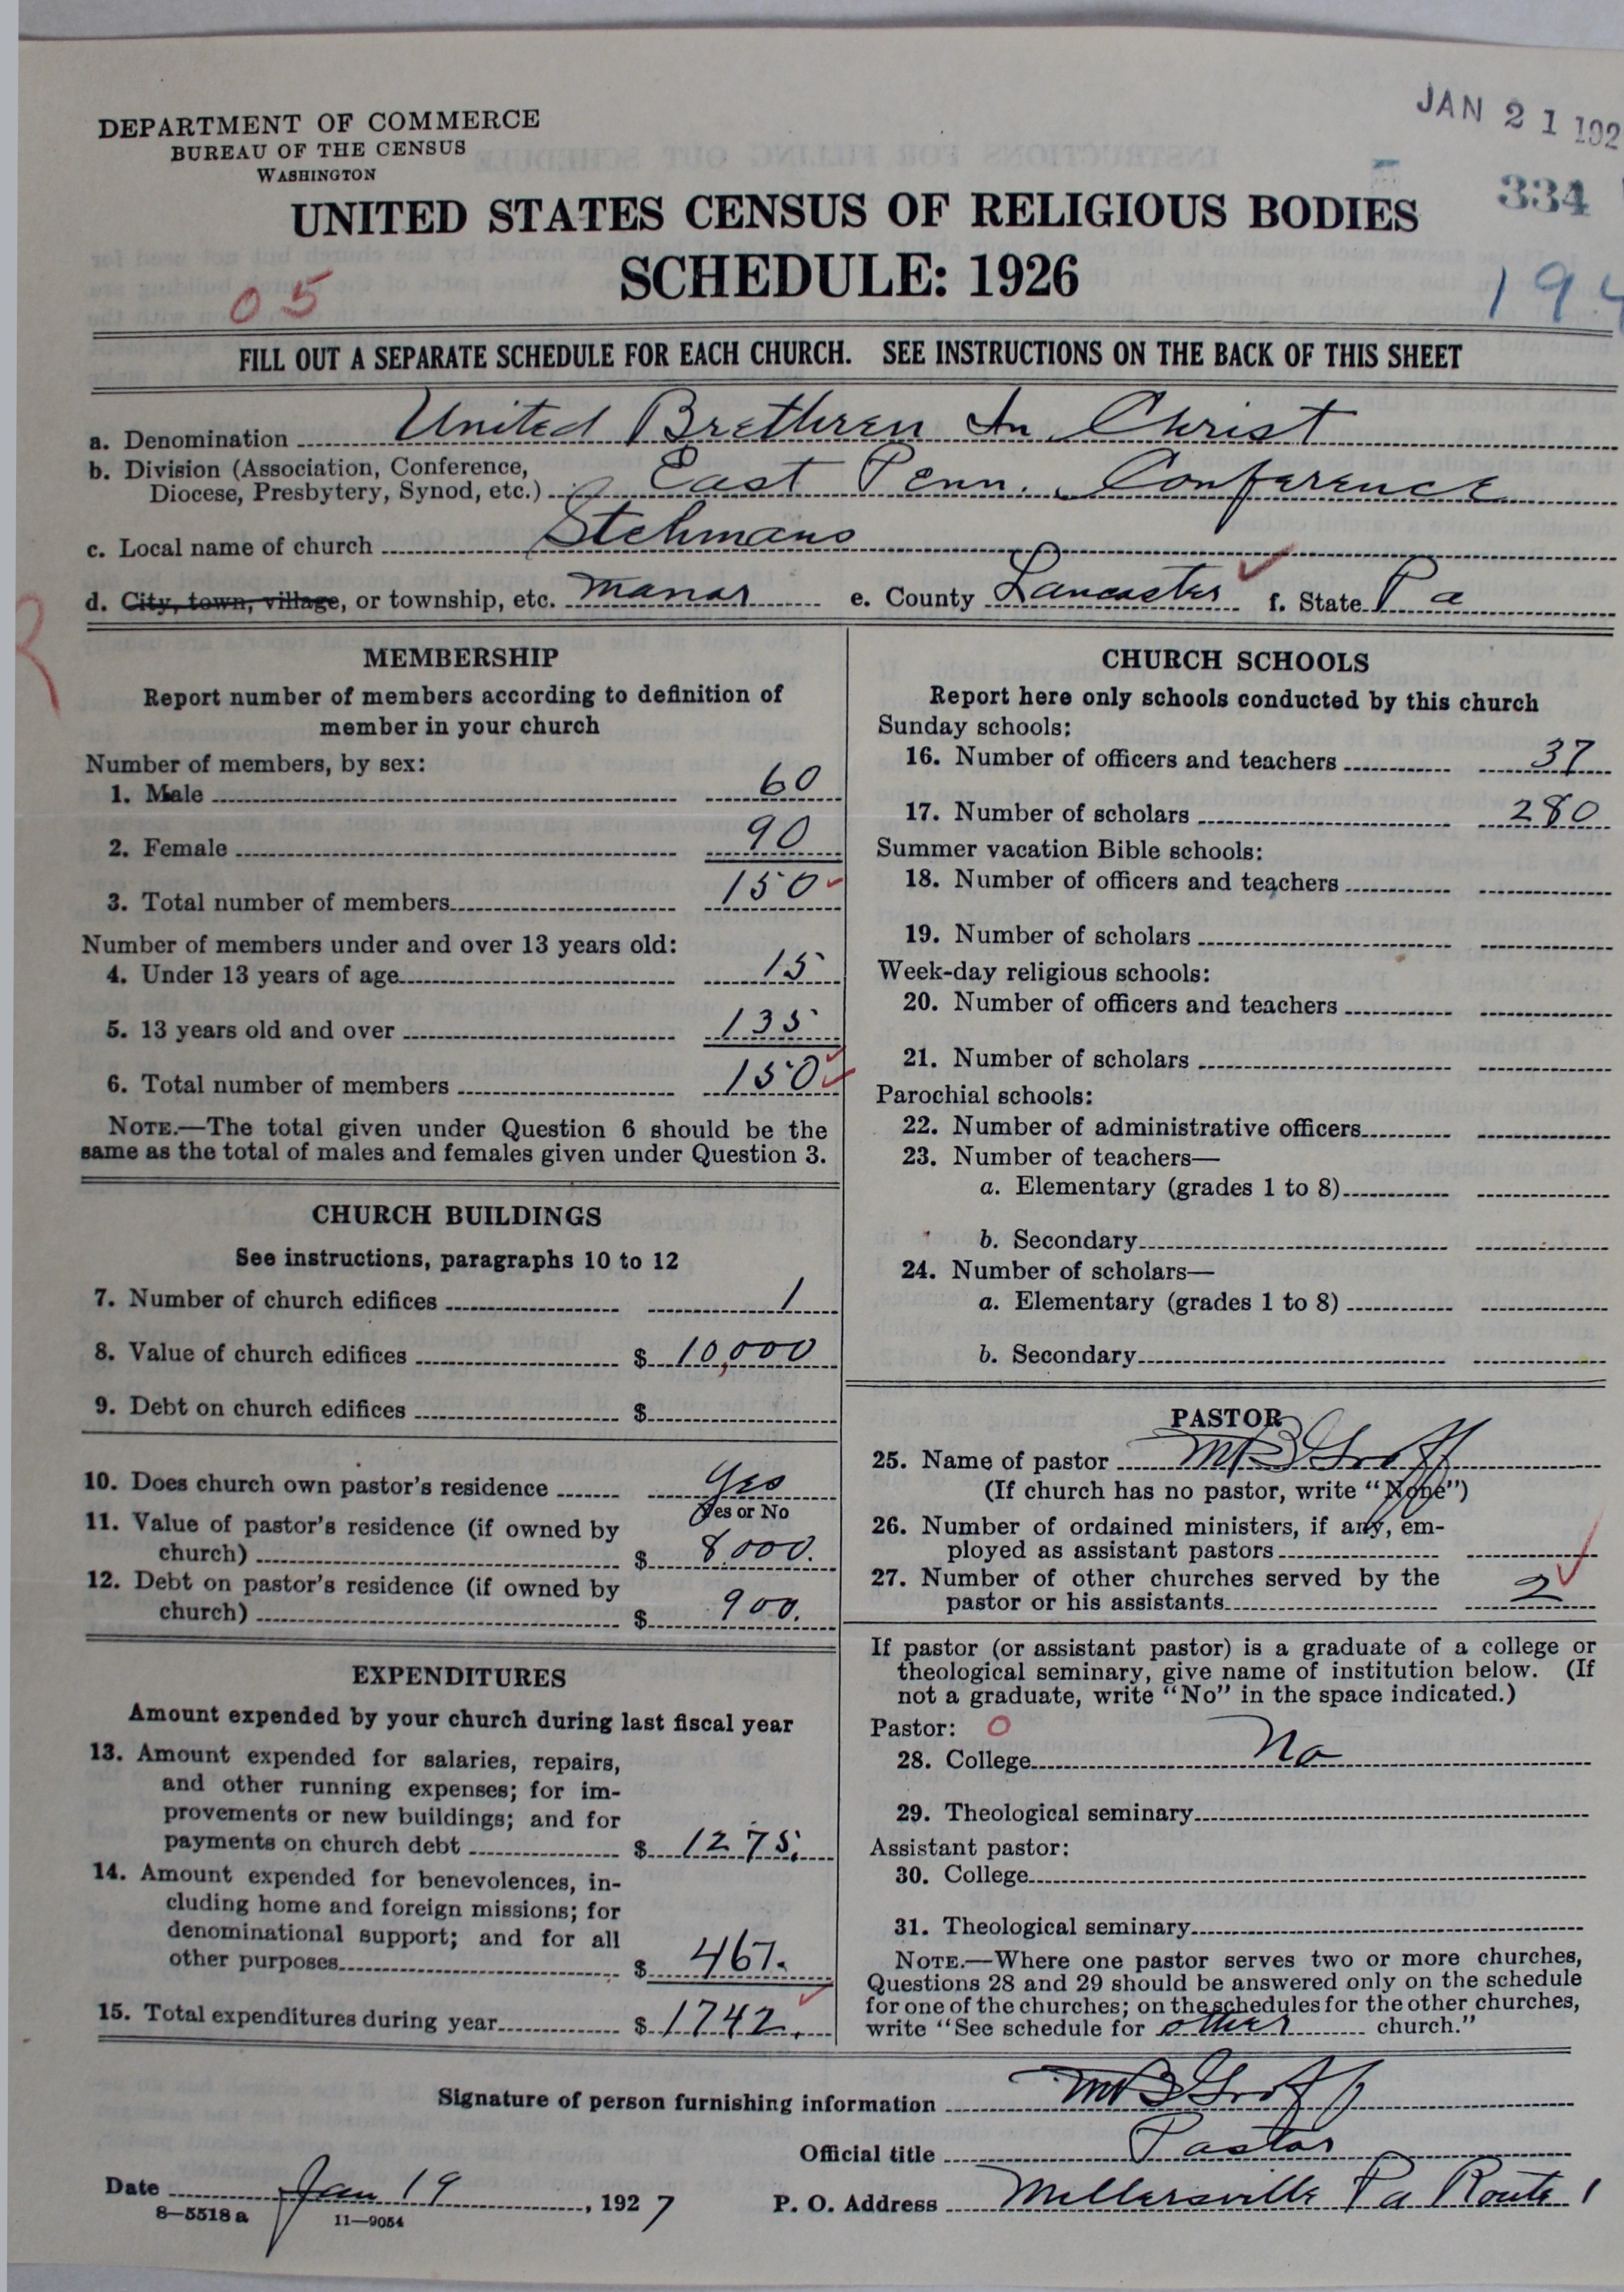 DEPARTMENT OF COMMERCE
BUREAU OF THE CENSUS
WASHINGTON
JAN 21 192
334
UNITED STATES CENSUS OF RELIGIOUS BODIES
SCHEDULE: 1926
05
194
FILL OUT A SEPARATE SCHEDULE FOR EACH CHURCH. SEE INSTRUCTIONS ON THE BACK OF THIS SHEET
a. Denomination United Brethren In Christ
b. Division (Association, Conference,
Diocese, Presbytery, Synod, etc.) East Penn. Conference
c. Local name of church Stehmans
d. City, town, village, or township, etc. Manor e. County Lancaster f. State Pa
MEMBERSHIP
Report number of members according to definition of
member in your church
Number of members, by sex:
1. Male 60
2. Female 90
3. Total number of members 150
Number of members under and over 13 years old:
4. Under 13 years of age 15
5. 13 years old and over 135
6. Total number of members 150
NOTE.—The total given under Question 6 should be the
same as the total of males and females given under Question 3.
CHURCH BUILDINGS
See instructions, paragraphs 10 to 12
7. Number of church edifices 1
8. Value of church edifices $ 10,000
9. Debt on church edifices $
10. Does church own pastor's residence Yes
Yes or No
11. Value of pastor's residence (if owned by
church) $ 8000.
12. Debt on pastor's residence (if owned by
church) $ 900.
EXPENDITURES
Amount expended by your church during last fiscal year
13. Amount expended for salaries, repairs,
and other running expenses; for im-
provements or new buildings; and for
payments on church debt $ 1275.
14. Amount expended for benevolences, in-
cluding home and foreign missions; for
denominational support; and for all
other purposes $ 467.
15. Total expenditures during year $ 1742.
CHURCH SCHOOLS
Report here only schools conducted by this church
Sunday schools:
16. Number of officers and teachers 37
17. Number of scholars 280
Summer vacation Bible schools:
18. Number of officers and teachers
19. Number of scholars
Week-day religious schools:
20. Number of officers and teachers
21. Number of scholars
Parochial schools:
22. Number of administrative officers
23. Number of teachers—
a. Elementary (grades 1 to 8)
b. Secondary
24. Number of scholars—
a. Elementary (grades 1 to 8)
b. Secondary
PASTOR
25. Name of pastor M B Groff
(If church has no pastor, write "None")
26. Number of ordained ministers, if any, em-
ployed as assistant pastors
27. Number of other churches served by the
pastor or his assistants 2
If pastor (or assistant pastor) is a graduate of a college or
theological seminary, give name of institution below. (If
not a graduate, write "No" in the space indicated.)
Pastor: 0
28. College No
29. Theological seminary
Assistant pastor:
30. College
31. Theological seminary
NOTE.—Where one pastor serves two or more churches,
Questions 28 and 29 should be answered only on the schedule
for one of the churches; on the schedules for the other churches,
write "See schedule for other church."
Signature of person furnishing information M B Groff
Official title Pastor
Date Jan 19, 1927 P. O. Address Millersville Pa Route 1
8—5518 a 11—9054